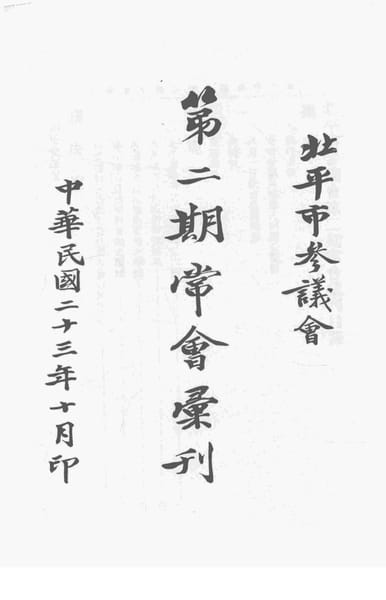 北平市參議會
第二期常會彙刊
中華民國二十三年十月印